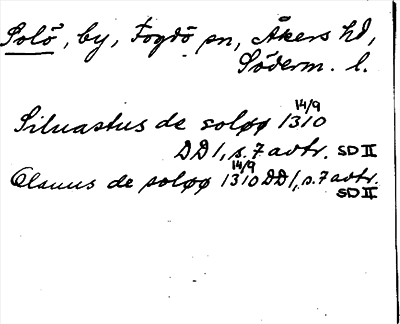 Solö, by, Fogdö sn, Åkers hd,
Söderm. l.
Siluastus de soløø 14/9 1310
DD 1, s. 7 avtr. SD II
Olauus de soløø 14/9 1310 DD 1, s. 7 avtr.
SD II